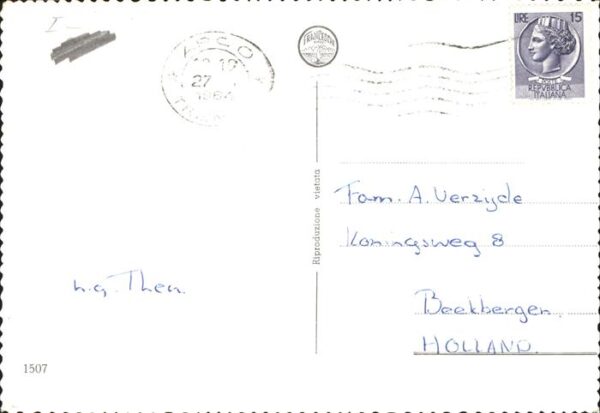 I-
27
1964
LIRE 15
POSTE
REPVBBLICA
ITALIANA
Riproduzione vietata
Fam. A. Verzijde
Koningsweg 8
Beekbergen.
HOLLAND.
h.g. Thea.
1507